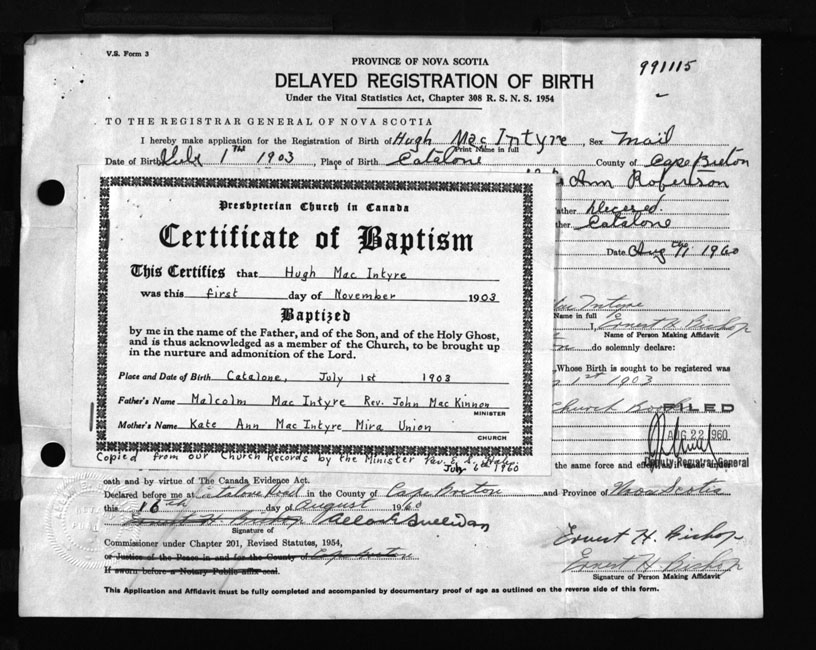 V.S. Form 3
PROVINCE OF NOVA SCOTIA
991115
DELAYED REGISTRATION OF BIRTH
Under the Vital Statistics Act, Chapter 308 R. S. N. S. 1954
TO THE REGISTRAR GENERAL OF NOVA SCOTIA
I hereby make application for the Registration of Birth of Hugh Mac Intyre, Sex Mail
Print Name in full
Date of Birth July 1th 1903, Place of Birth Catalone County of Cape Breton
Ann Robertson
Presbyterian Church in Canada
Certificate of Baptism
This Certifies that Hugh Mac Intyre
was this first day of November 1903
Baptized
by me in the name of the Father, and of the Son, and of the Holy Ghost,
and is thus acknowledged as a member of the Church, to be brought up
in the nurture and admonition of the Lord.
Place and Date of Birth Catalone, July 1st 1903
Father's Name Malcolm Mac Intyre Rev. John Mac Kinnon
MINISTER
Mother's Name Kate Ann Mac Intyre Mira Union
CHURCH
Copied from our Church Records by the Minister Rev. E.
July 6th 1960
ather Deceased.
ther. Catalone
Date Aug 1960
Mac Intyre
Name in full
I, Ernest H Bishop
Name of Person Making Affidavit
do solemnly declare:
Whose Birth is sought to be registered was
1st 1903
Church
FILED
AUG 22 1960
Deputy Registrar General
the same force and effect
oath and by virtue of The Canada Evidence Act.
Declared before me at Catalone Road in the County of Cape Breton and Province of Nova Scotia
this 16th day of August 1960
Ernest H Bishop Allan Sullivan
Signature of
Commissioner under Chapter 201, Revised Statutes, 1954,
or Justice of the Peace in and for the County of Cape Breton
If sworn before a Notary Public affix seal.
Ernest H. Bishop
Ernest H. Bishop
Signature of Person Making Affidavit
This Application and Affidavit must be fully completed and accompanied by documentary proof of age as outlined on the reverse side of this form.